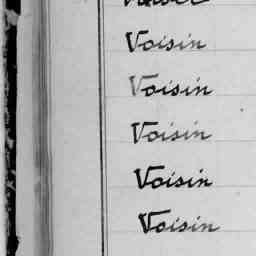 Voisin
Voisin
Voisin
Voisin
Voisin